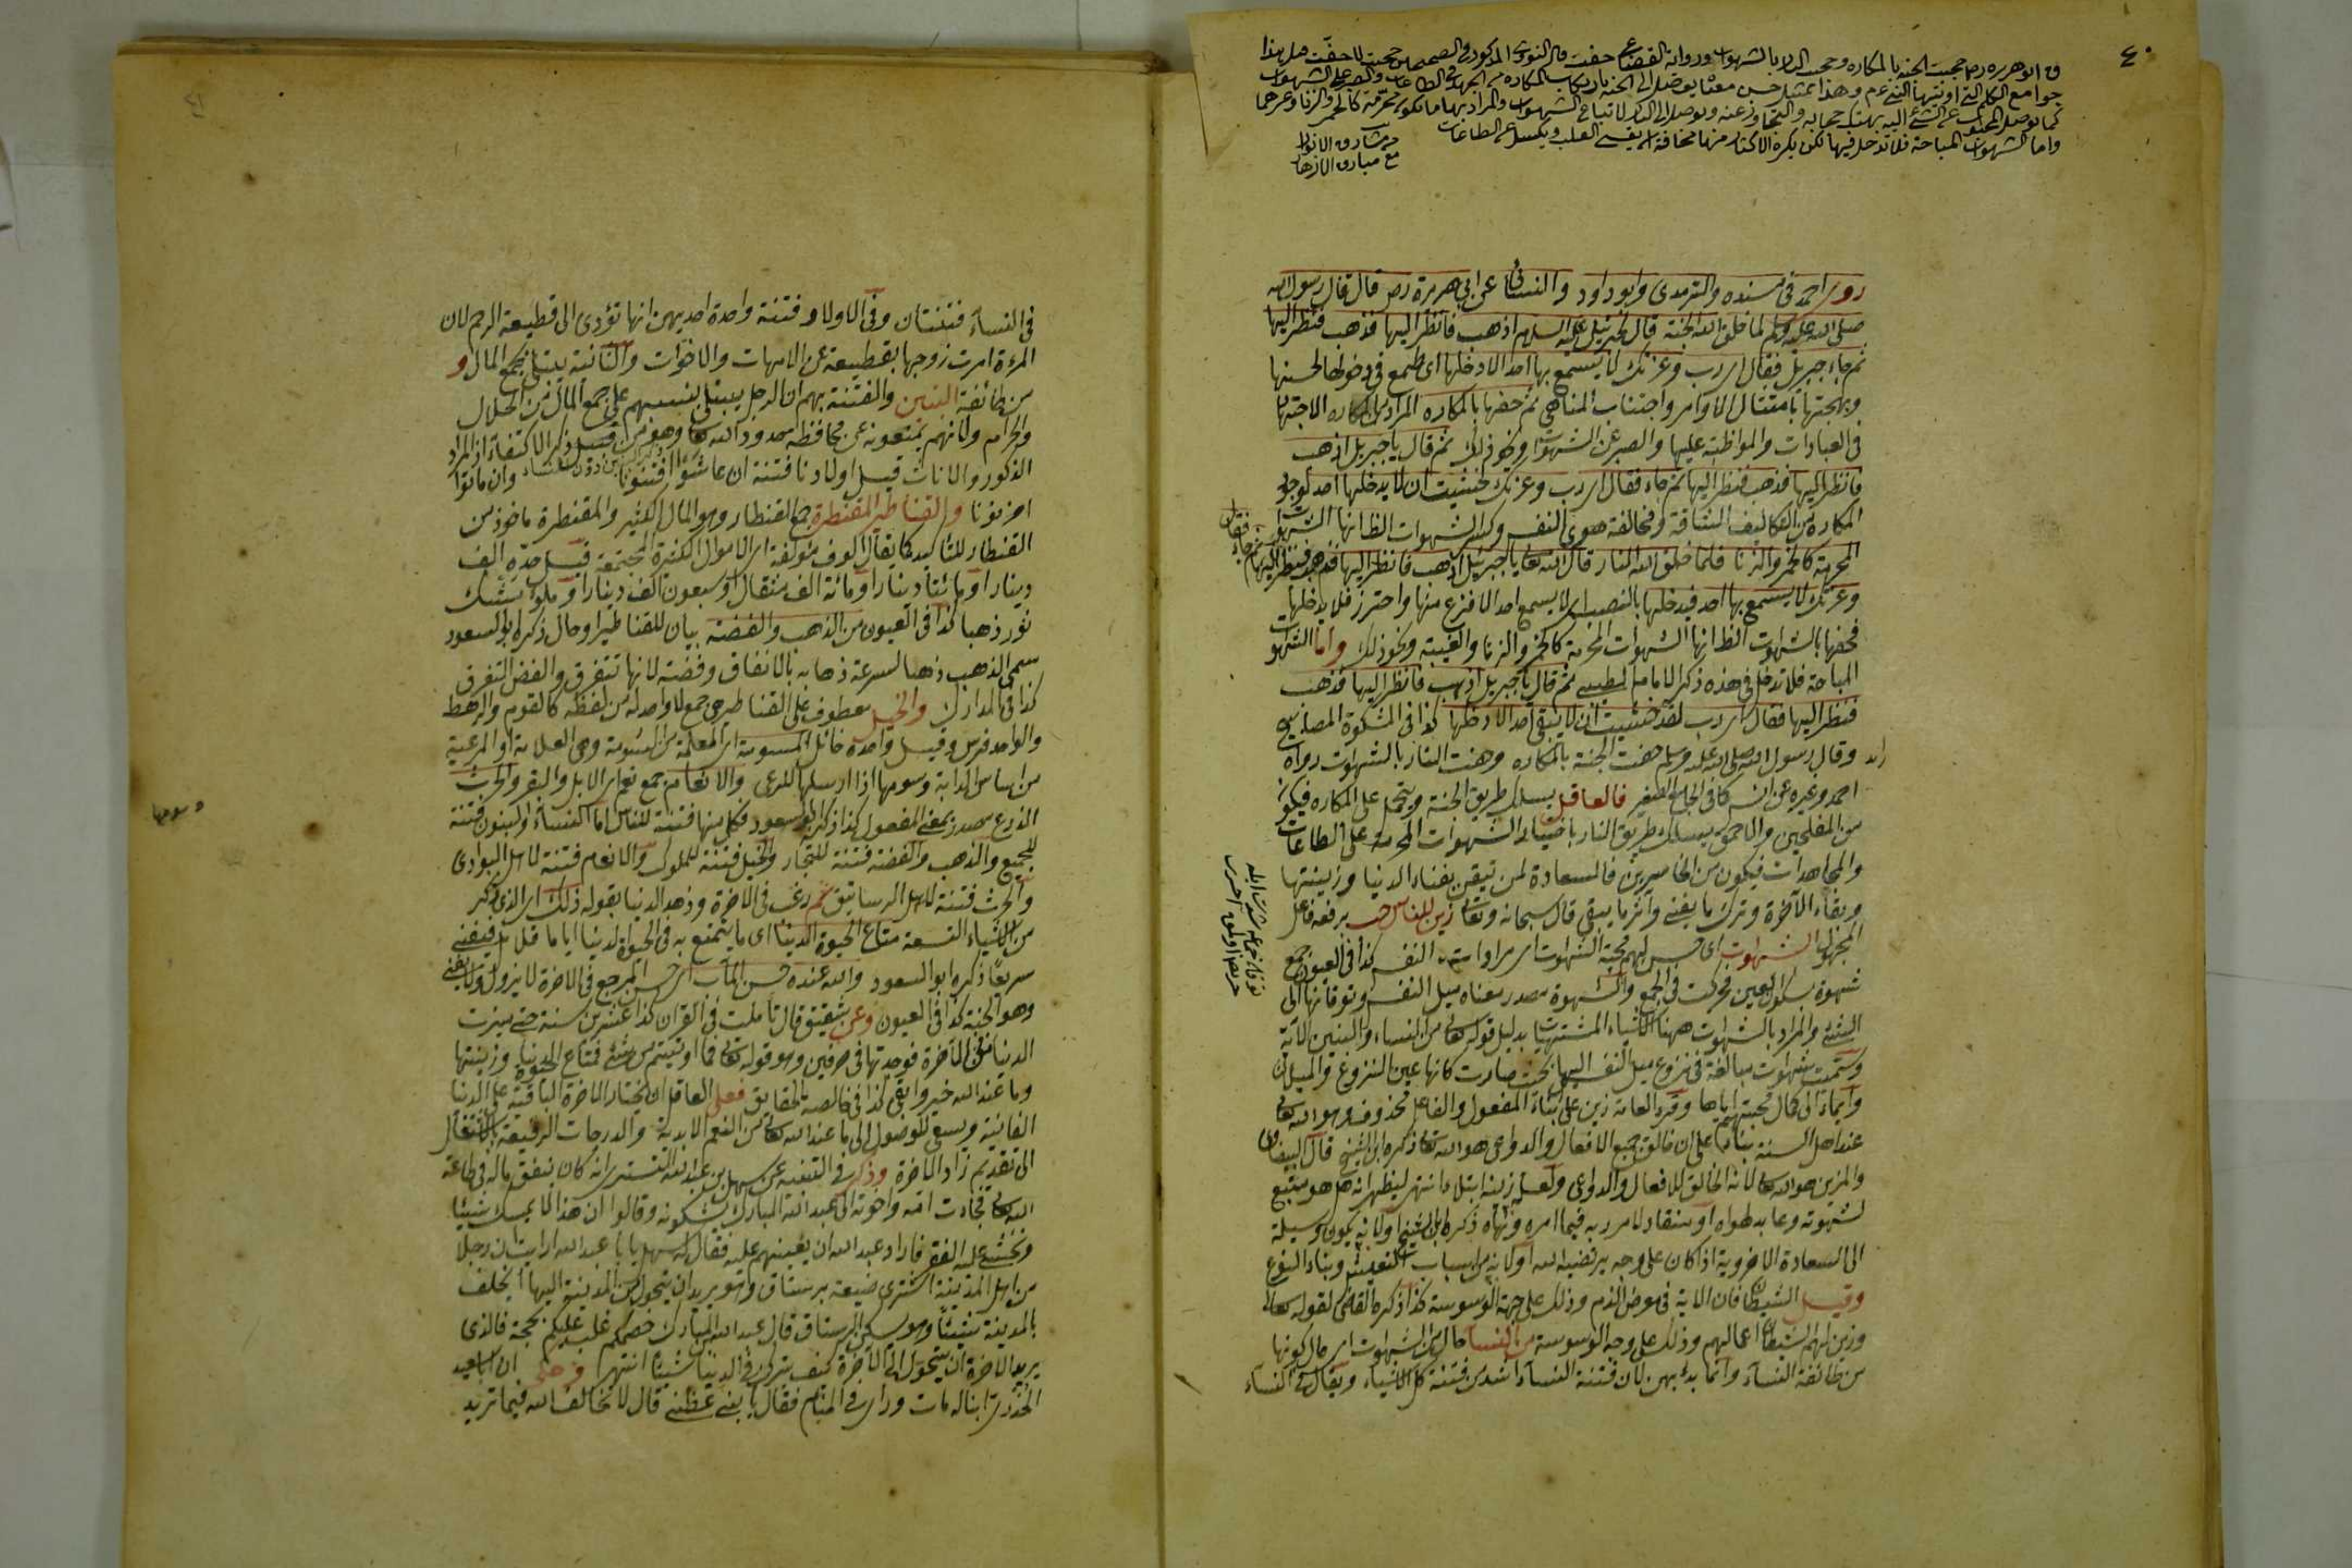 ٤٠
ق ابو هريره رضـ حجبت الجنه بالمكاره وحجبت النار بالشهوات ورواية القضاعى حفت قال النووى المذكور فى الصحيحين حجبت لا حفت هذا
جوامع الكلم التى اوتيها النبى عم وهذا تمثيل حسن معناه يوصل الى الجنة بارتكاب المكاره من الجهد فى الطاعات والصبر على الشهوات
كما يوصل المحجوب عن الشئ اليه بهتك حجابه والتجاوز عنه ويوصل الى النار لاتباع الشهوات والمراد بها ما تكون محرمة كالخمر والزنا وغيرهما
واما الشهوات المباحة فلا تدخل فيها لكن يكره الاكثار منها مخافة ان يقسى القلب ويكسل عن الطاعات
مشارق الانوار
مع مبارق الازهار
روى احمد فى مسنده والترمذى وابو داود والنسائى عن ابى هريرة رضـ قال قال رسول الله
صلى الله عليه وسلم لما خلق الله الجنة قال لجبرئيل عليه السلام اذهب فانظر اليها فذهب فنظر اليها
ثم جاء جبريل فقال اى رب وعزتك لا يسمع بها احد الا دخلها اى طمع فى دخولها لحسنها
وبهجتها بامتثال الاوامر واجتناب المناهى ثم حفها بالمكاره المراد من المكاره الاجتهاد
فى العبادات والمواظبة عليها والصبر عن الشهوات ونحو ذلك ثم قال يا جبريل اذهب
فانظر اليها فذهب فنظر اليها ثم جاء فقال اى رب وعزتك لخشيت ان لا يدخلها احد لوجود
المكاره من التكاليف الشاقة ومخالفة هوى النفس وكسر الشهوات الظ انها الشهوات
المحرمة كالخمر والزنا فلما خلق الله النار قال الله تعالى يا جبرئيل اذهب فانظر اليها فذهب فنظر اليها ثم جاء فقال
وعزتك لا يسمع بها احد فيدخلها بالنصب اى لا يسمع احد الا فزع منها واحترز فلا يدخلها
فحفها بالشهوات الظ انها الشهوات المحرمة كالخمر والزنا والغيبة ونحو ذلك واما الشهوات
المباحة فلا تدخل فى هذه ذكره الامام الطيبى ثم قال يا جبريل اذهب فانظر اليها فذهب
فنظر اليها فقال اى رب لقد خشيت ان لا يبقى احد الا دخلها كذا فى المشكوة المصابيح
وقال رسول الله صلى الله عليه وسلم حفت الجنة بالمكاره وحفت النار بالشهوات رواه
احمد وغيره عن انس كذا فى الجامع الصغير فالعاقل يسلك طريق الجنة ويتحمل على المكاره فيكون
من المفلحين والاحمق يسلك طريق النار باختيار الشهوات المحرمة على الطاعات
والمجاهدات فيكون من الخاسرين فالسعادة لمن تيقن بفناء الدنيا وزينتها
وبقاء الآخرة وترك ما يفنى وآثر ما يبقى قال سبحانه وتعالى زين للناس حب برفعه فاعل
المجهول الشهوات اى حسن لهم محبة الشهوات اى مرادات النفس كذا فى العيون جمع
شهوة بسكون العين فحركت فى الجمع والشهوة مصدر معناه ميل النفس وتوقانها الى
الشئ والمراد بالشهوات ههنا الاشياء المشتهيات بدليل قوله تعالى من النساء والبنين الآية
وسميت شهوات مبالغة فى نزوع ميل النفس اليها بحيث صارت كانها عين النزوع والميلان
وايماء الى كمال محبتهم اياها وقرء العامة زين على بناء المفعول والفاعل محذوف وهو الله تعالى
عند اهل السنة بناء على ان خالق جميع الافعال والدواعى هو الله تعالى ذكره ابن الشيخ قال البيضاوى
والمزين هو الله تعالى لانه الخالق للافعال والدواعى ولعله زينه ابتلاء انتهى ليظهر انه هل هو متبع
لشهوته وعابد لهواه او منقاد لامر ربه فيما امره ونهاه ذكره ابن الشيخ او لانه يكون وسيلة
الى السعادة الاخروية اذا كان على وجه يرتضيه الله او لانه من اسباب التعيش وبقاء النوع
وقيل الشيطان فان الاية فى معرض الذم وذلك على جهة الوسوسة كذا ذكره القاضى لقوله تعالى
وزين لهم الشيطان اعمالهم وذلك على وجه الوسوسة من النساء حال من الشهوات اى حال كونها
من طائفة النساء وانما بدئ بهن لان فتنة النساء اشد من فتنة كل الاشياء ويقال فى النساء
فى النساء فتنتان وفى الاولاد فتنة واحدة احديهن انها تؤدى الى قطيعة الرحم لان
المرءة امرت زوجها بقطيعة عن الامهات والاخوات والثانية يبتلى بجمع المال و
من طائفة البنين والفتنة بهم ان الرجل يبتلى بسببهم على جمع المال من الحلال
والحرام ولانهم يمنعونه عن محافظة حدود الله تعالى وهو من قبيل ذكر الاكتفاء اذ المراد
الذكور والاناث قيل اولادنا فتنة ان عاشوا فتنونا وان ماتوا
احزنونا والقناطير المقنطرة جمع القنطار وهو المال الكثير والمقنطرة ماخوذ من
القنطار للتاكيد كما يقال الوف مؤلفة اى الاموال الكثيرة المجتمعة قيل حده الف
دينار او مائتا دينار او مائة الف مثقال او سبعون الف دينار او ملؤ مسك
ثور ذهبا كذا فى العيون من الذهب والفضة بيان للقناطير او حال ذكره ابو السعود
سمى الذهب ذهبا لسرعة ذهابه بالانفاق وفضة لانها تتفرق والفض التفرق
كذا فى المدارك والخيل معطوف على القناطير هى جمع لا واحد له من لفظه كالقوم والرهط
والواحد فرس وقيل واحده خائل المسومة اى المعلمة من السومة وهى العلامة او المرعية
من اسام الدابة وسومها اذا ارسلها للرعى والانعام جمع نعم اى الابل والبقر والحرث
الزرع مصدر بمعنى المفعول كذا ذكره ابو السعود فكل منها فتنة للناس اما النساء والبنون فتنة
للجميع والذهب والفضة فتنة للتجار والخيل فتنة للملوك والانعام فتنة لاهل البوادى
والحرث فتنة لاهل الرساتيق ثم رغب فى الاخرة وزهد الدنيا بقوله ذلك اى الذى ذكر
من الاشياء التسعة متاع الحيوة الدنيا اى ما يتمتع به فى الحيوة الدنيا اياما قلائل فيفنى
سريعا ذكره ابو السعود والله عنده حسن المآب اى حسن المرجع فى الآخرة لا يزول ولا يفنى
وهو الجنة كذا فى العيون وعن شقيق قال تأملت فى القرآن كذا عشرين سنة حتى ميزت
الدنيا من الآخرة فوجدتها فى حرفين وهو قوله تعالى فما اوتيتم من شئ فمتاع الحيوة الدنيا وزينتها
وما عند الله خير وابقى كذا فى خالصة الحقايق فعلى العاقل ان يختار الاخرة الباقية على الدنيا
الفانية ويسعى للوصول الى ما عند الله تعالى من النعم الابدية والدرجات الرفيعة بالاشتغال
الى تقديم زاد الآخرة وذكر فى التنبيه عن سهل بن عبد الله التسترى انه كان ينفق ماله فى طاعة
الله تعالى فجاءت امه واخوته الى عبد الله المبارك يشكونه وقالوا ان هذا لا يمسك شيئا
ونخشى عليه الفقر فاراد عبد الله ان يعينهم عليه فقال له سهل يا ابا عبد الله ارايت ان رجلا
من اهل المدينة اشترى ضيعة برستاق وهو يريد ان يتحول من المدينة اليها ايخلف
بالمدينة شيئا وهو يسكن الرستاق قال عبد الله المبارك خصمكم غلب عليكم بحجة فالذى
يريد الآخرة ان يتحول الى الآخرة كيف يترك فى الدنيا شيئا انتهى وحكى ان ابا سعيد
الخدرى ابنا له مات وراى فى المنام فقال يا بنى عظنى قال لا تخالف الله فيما تريد